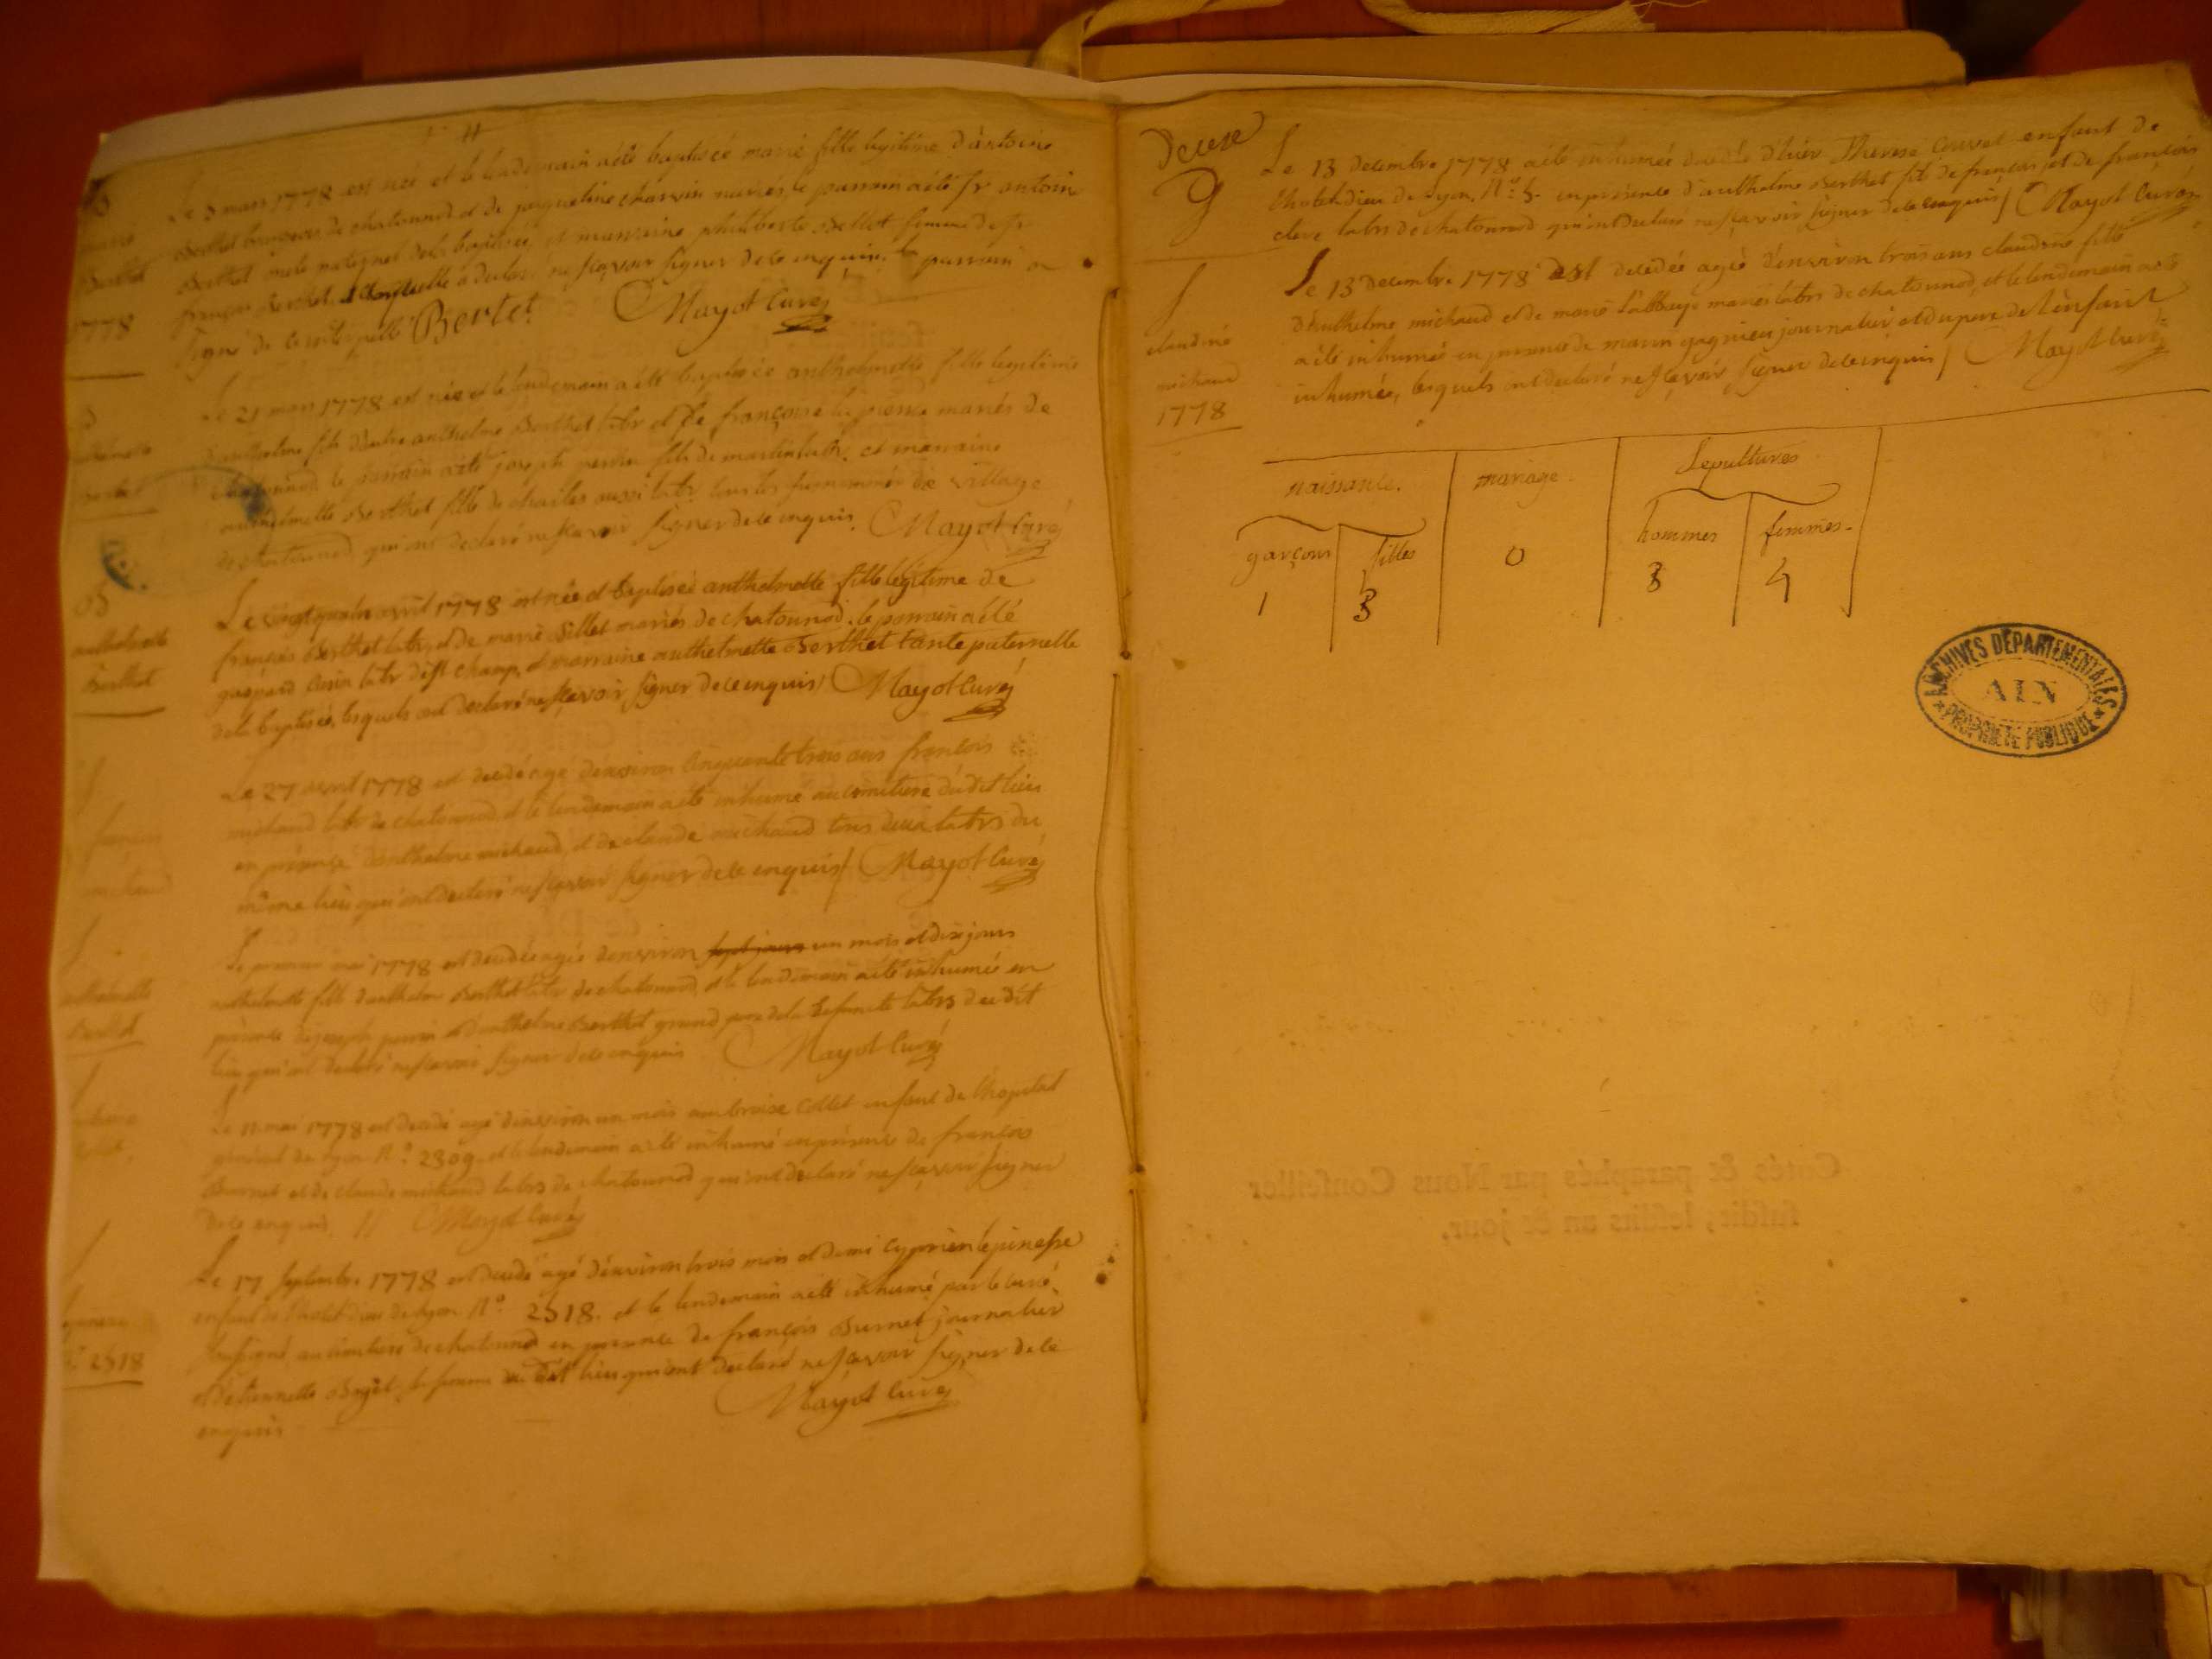 B
marie
Berthet
1778
Le 3 mars 1778 est née et le lendemain a été baptisée marie fille légitime d'antoine
Berthet de chatonnod et de jacqueline charvin mariés, le parrain a été fr antoine
Berthet oncle paternel de la baptisée, et marraine philiberte Bellet femme de fr
françois Berthet, laquelle a déclaré ne scavoir signer de ce enquise, le parrain a
signé de ce interpellé Bertet Mayot Curé
B
anthelmette
Berthet
Le 21 mars 1778 est née et le lendemain a été baptisée anthelmette fille legitime
d'anthelme fils d'autre anthelme Berthet labr et de françoise mariés de
chatonnod le parrain a été joseph perrin fils de martin labr. et marraine
anthelmette Berthet fille de charles aussi labr tous les susnommés de village
de chatonnod qui ont déclaré ne scavoir signer de ce enquis. Mayot Curé
B
anthelmette
Berthet
Le vingt quatre avril 1778 est née et baptisée anthelmette fille légitime de
françois Berthet labr, et de marie Billet mariés de chatonnod. le parrain a été
gaspard Cusin labr de st champ, et marraine anthelmette Berthet tante paternelle
de la baptisée, lesquels ont declaré ne scavoir signer de ce enquis/ Mayot Curé
S
françois
michaud
Le 27 avril 1778 est decedé agé d'environ cinquante trois ans françois
michaud labr de chatonnod, et le lendemain a été inhumé au cimetiere du dit lieu
en présence d'anthelme michaud, et de claude michaud tous deux labrs du
même lieu qui ont declaré ne scavoir signer de ce enquis/ Mayot Curé
S
anthelmette
Berthet
Le premier mai 1778 est decedée agée d'environ sept jours un mois et dix jours
anthelmette fille d'anthelme Berthet labr de chatonnod, et le lendemain a été inhumée en
présence de joseph perrin et d'anthelme Berthet grand pere de la defunte labrs du dit
lieu qui ont declaré ne scavoir signer de ce enquis Mayot Curé
S
ambroise
Collet
Le 11 mai 1778 est decedé agé d'environ un mois ambroise Collet enfant de l'hopital
général de Lyon N.° 2309. et le lendemain a été inhumé en présence de françois
Burnet et de claude michaud labrs de chatonnod qui ont declaré ne scavoir signer
de ce enquis. // Mayot Curé
S
N° 2518
Le 17 septembre 1778 est decedé agé d'environ trois mois et demi Cyprien
enfant de l'hotel Dieu de Lyon N.° 2518. et le lendemain a été inhumé par le curé
soussigné au cimetiere de chatonnod en presence de françois Burnet journalier
et de sa femme du dit lieu qui ont declaré ne scavoir signer de ce
enquis Mayot Curé
deuxe
Le 13 decembre 1778 a été inhumée decedée d'hier Therese Couvet enfant de
l'hotel-dieu de Lyon, N.° 5. en présence d'anthelme Berthet fils de françois, et de françois
cleve labrs de chatonnod qui ont declaré ne scavoir signer de ce enquis/ Mayot Curé
S
claudine
michaud
1778
Le 13 decembre 1778 est decedée agée d'environ trois ans claudine fille
d'anthelme michaud et de marie l'abbaye mariés labrs de chatonnod, et le lendemain a
a été inhumée en presence de marin gagnieu journalier et du pere de l'enfant
inhumée, lesquels ont declaré ne scavoir signer de ce enquis/ Mayot Curé
naissance. mariage. Sepultures
garçons filles 0 hommes femmes.
1 3 3 4
ARCHIVES DÉPARTEMENTALES
AIN
PROPRIÉTÉ PUBLIQUE
Cotés & paraphés par Nous Conseiller
susdit, lesdits an & jour.